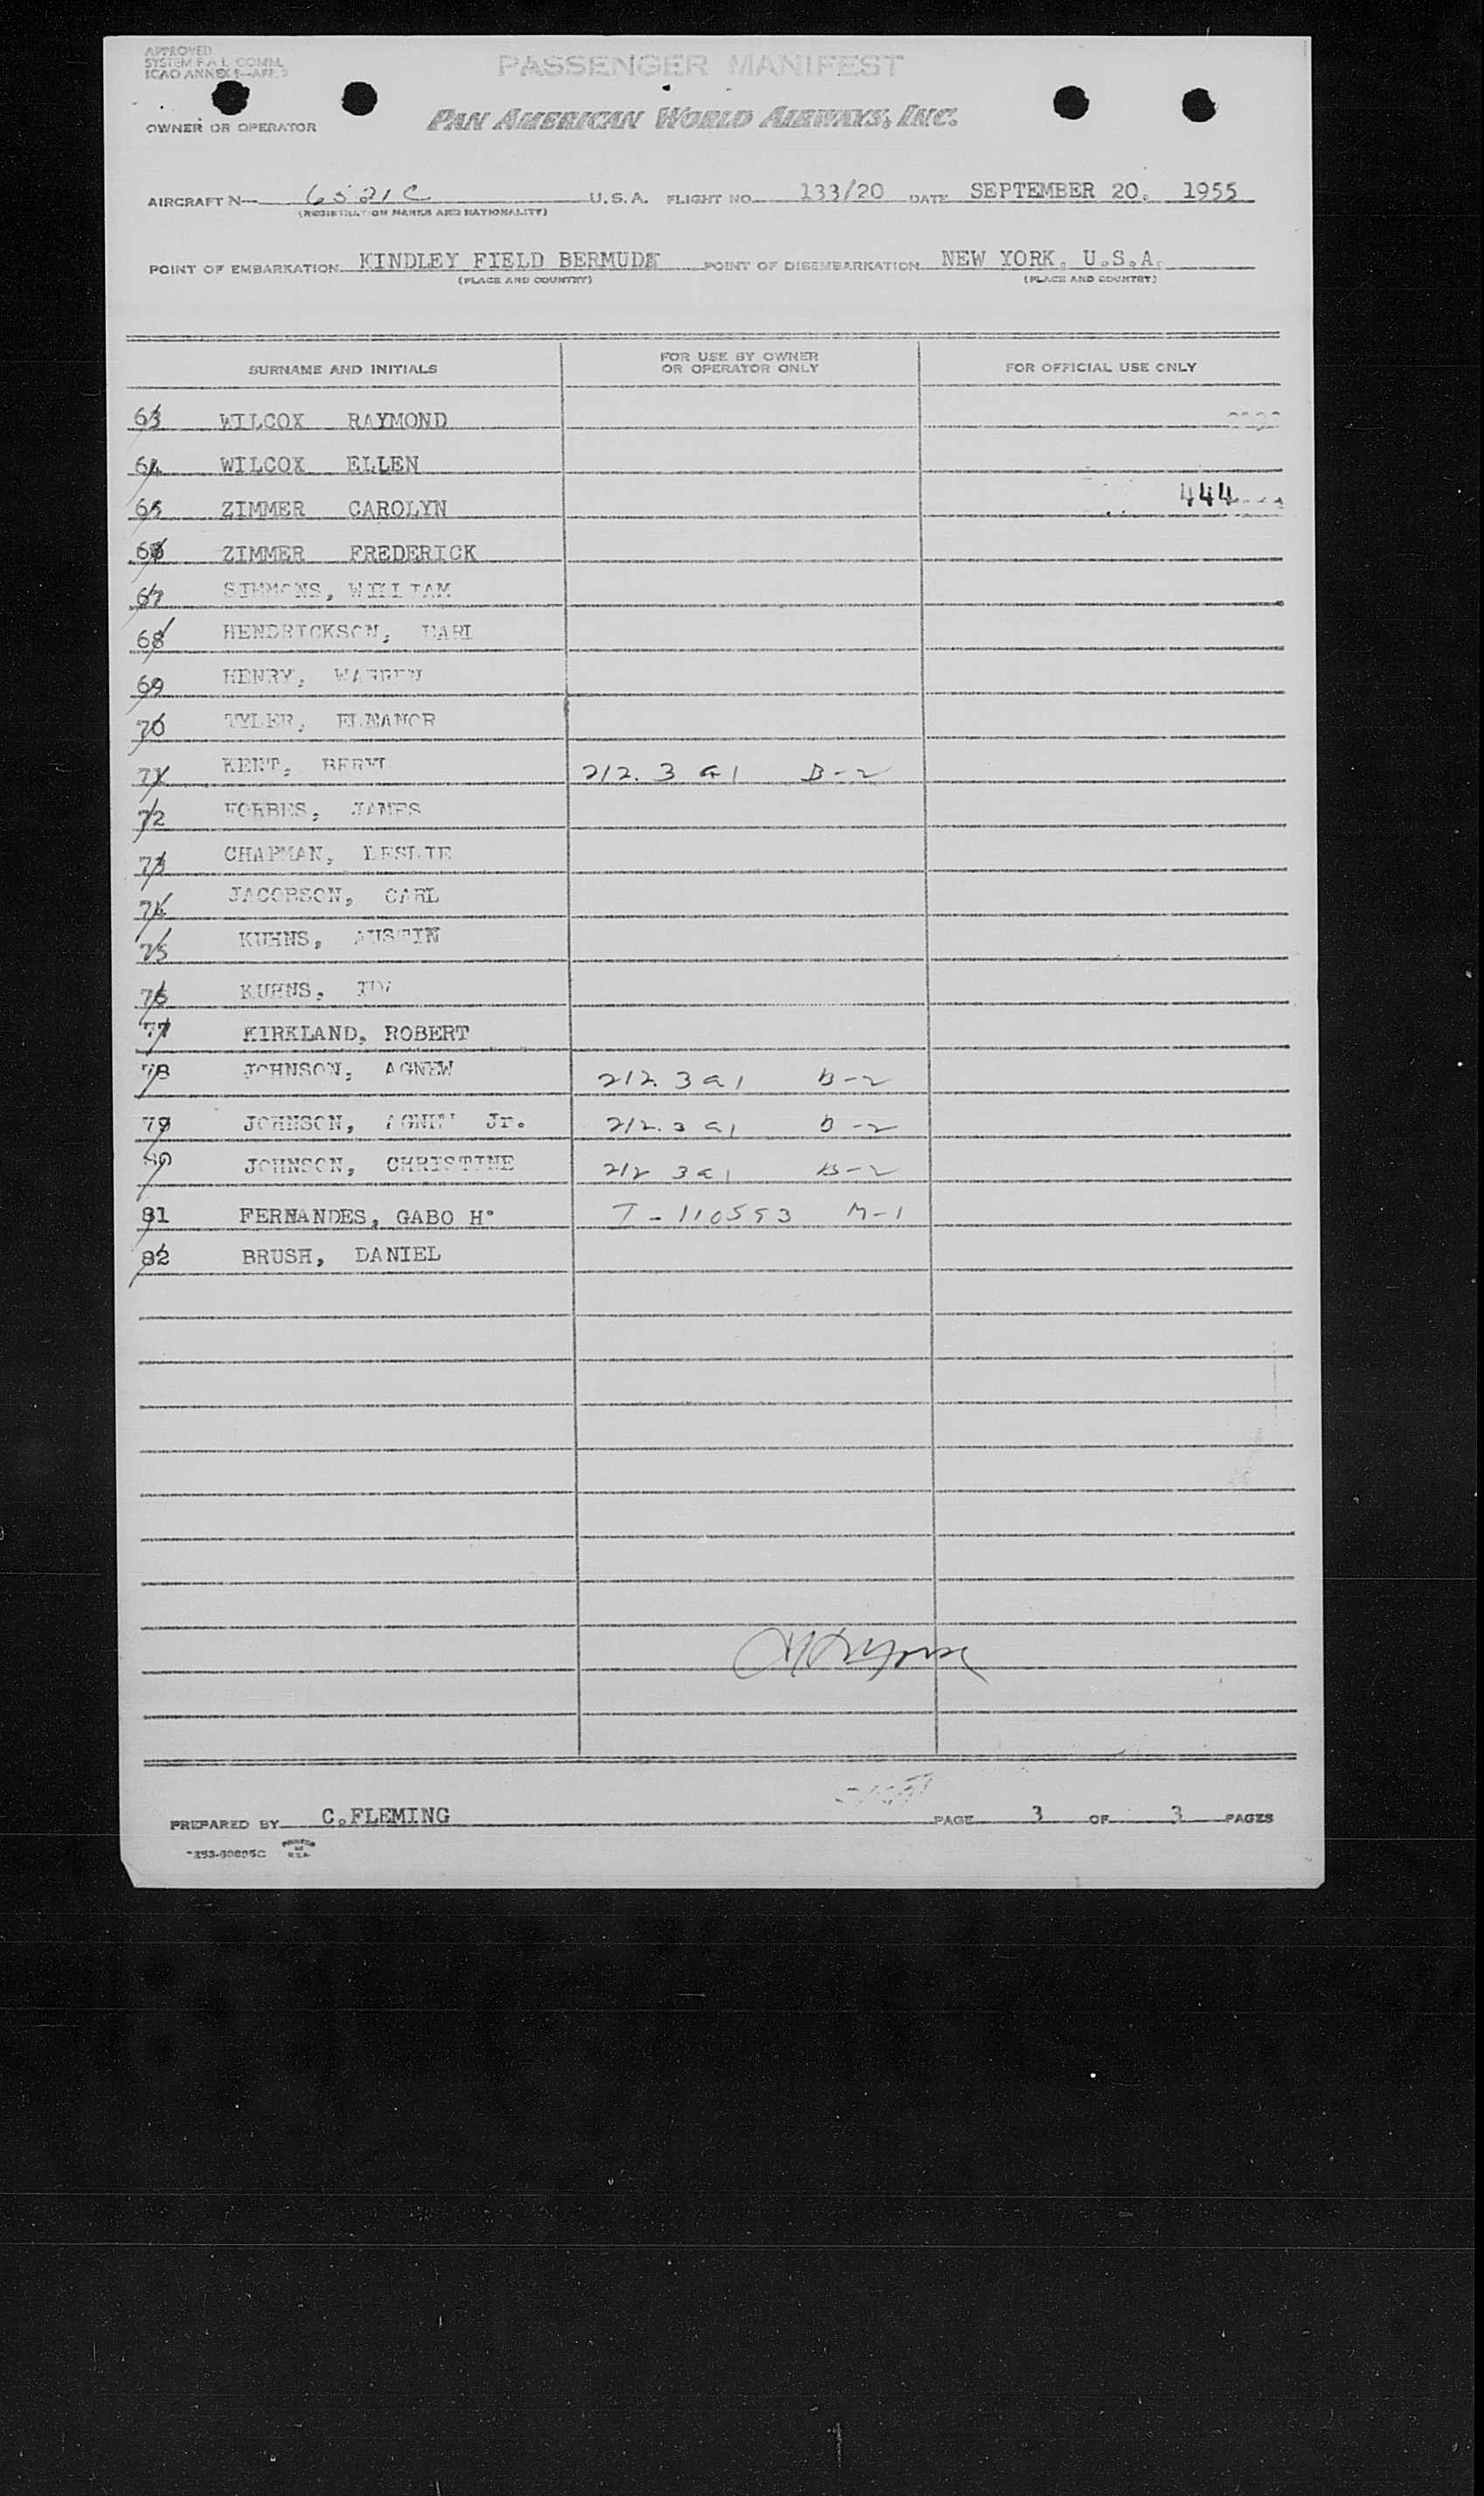 APPROVED
SYSTEM F.A.L. COMM.
ICAO ANNEX 9—APP. 3
PASSENGER MANIFEST
OWNER OR OPERATOR
PAN AMERICAN WORLD AIRWAYS, INC.
AIRCRAFT N— 6521C U.S.A. FLIGHT NO. 133/20 DATE SEPTEMBER 20. 1955
(REGISTRATION MARKS AND NATIONALITY)
POINT OF EMBARKATION KINDLEY FIELD BERMUDA POINT OF DISEMBARKATION NEW YORK. U.S.A.
(PLACE AND COUNTRY) (PLACE AND COUNTRY)
SURNAME AND INITIALS FOR USE BY OWNER OR OPERATOR ONLY FOR OFFICIAL USE ONLY
63 WILCOX RAYMOND
64 WILCOX ELLEN
65 ZIMMER CAROLYN 444
66 ZIMMER FREDERICK
67 SIMMONS, WILLIAM
68 HENDRICKSON, EARL
69 HENRY, WARREN
70 TYLER, ELEANOR
71 KENT, BERYL 212.3 a1 B-2
72 FORBES, JAMES
73 CHAPMAN, LESLIE
74 JACOBSON, CARL
75 KUHNS, AUSTIN
76 KUHNS, IDA
77 KIRKLAND, ROBERT
78 JOHNSON, AGNEW 212.3 a1 B-2
79 JOHNSON, AGNEW Jr. 212.3 a1 B-2
80 JOHNSON, CHRISTINE 212 3a1 B-2
81 FERNANDES, GABO H. I-110553 M-1
82 BRUSH, DANIEL
PREPARED BY C.FLEMING PAGE 3 OF 3 PAGES
PRINTED IN U.S.A.